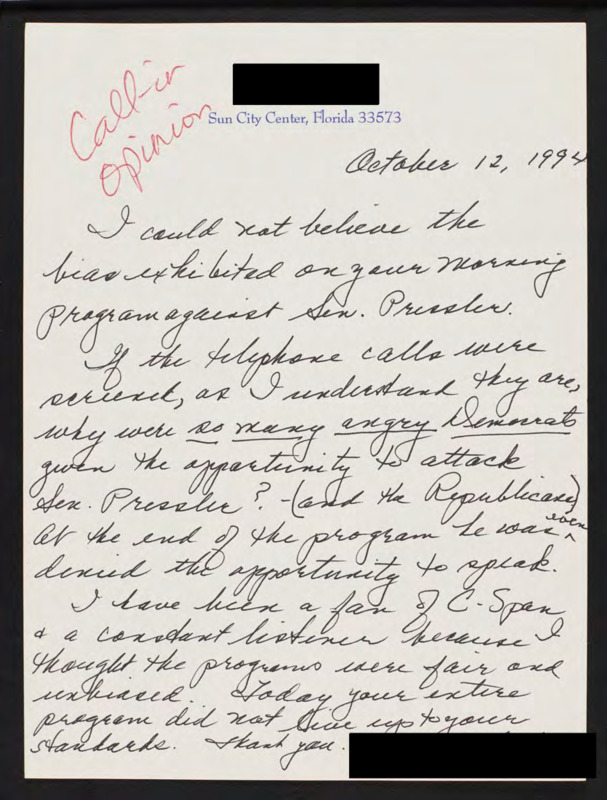 Call-in
Opinion
Sun City Center, Florida 33573
October 12, 1994
I could not believe the
bias exhibited on your morning
program against Sen. Pressler.
If the telephone calls were
screened, as I understand they are,
why were so many angry Democrats
given the opportunity to attack
Sen. Pressler? - (and the Republicans)
At the end of the program he was even
denied the opportunity to speak.
I have been a fan of C-Span
& a constant listener because I
thought the programs were fair and
unbiased. Today your entire
program did not live up to your
standards. Thank you.